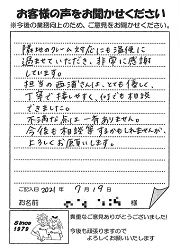 お客様の声をお聞かせください
※今後の業務向上のため、ご意見をお聞かせください。
隣地のクレーム対応にも適便に
進ませていただき、非常に感謝
しています。
担当の西浦さんは、とても優しく、
丁寧で接しやすく、何でも相談
できました。
不満な点は一切ありません。
今後も相談等するかもしれませんが、
よろしくお願いします。
ご記入日 2021年 7月 19日
お名前 様
貴重なご意見ありがとうございました!
今後も頑張りますので
よろしくお願いいたします
Since
1979